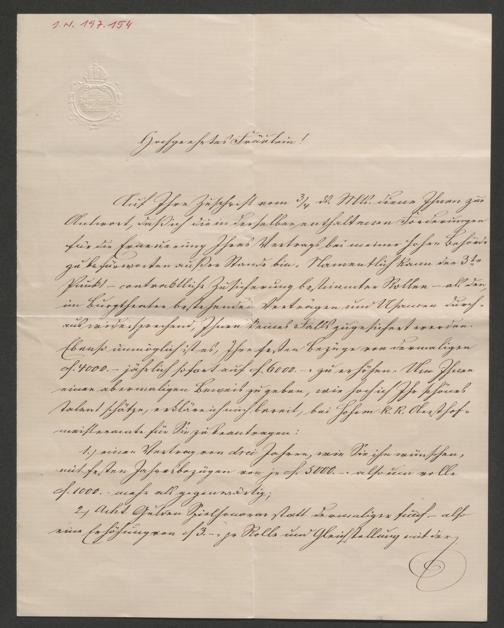 J. N. 197.154
Hochgeehrtes Fräulein!
Auf Ihre Zuschrift vom 3/4 d. Mts. diene Ihnen zur
Antwort, daß ich die in derselben enthaltenen Forderungen
für die Erneuerung Ihres Vertrags bei meiner hohen Behörde
zu befürworten außer Stande bin. Namentlich kann der 3te
Punkt – contractliche Zusicherung bestimmter Rollen – als den
im Burgtheater bestehenden Verträgen und Usancen durch-
aus widersprechend, Ihnen keines Falls zugesichert werden.
Ebenso unmöglich ist es, Ihre festen Bezüge von dermaligen
fl. 4000.– jährlich sofort auf fl. 6000.– zu erhöhen. Um Ihnen
einen abermaligen Beweis zu geben, wie hoch ich Ihr schönes
Talent schätze, erkläre ich mich bereit, bei hohem k. k. Obersthof-
meisteramte für Sie zu beantragen:
1.) einen Vertrag von drei Jahren, wie Sie ihn wünschen,
mit festen Jahresbezügen von je fl. 5000.– also um volle
fl. 1000.– mehr als gegenwärtig;
2.) Acht Gulden Spielhonorar statt dermaliger fünf – also
eine Erhöhung von fl 3.– pr Rolle und Gleichstellung mit der